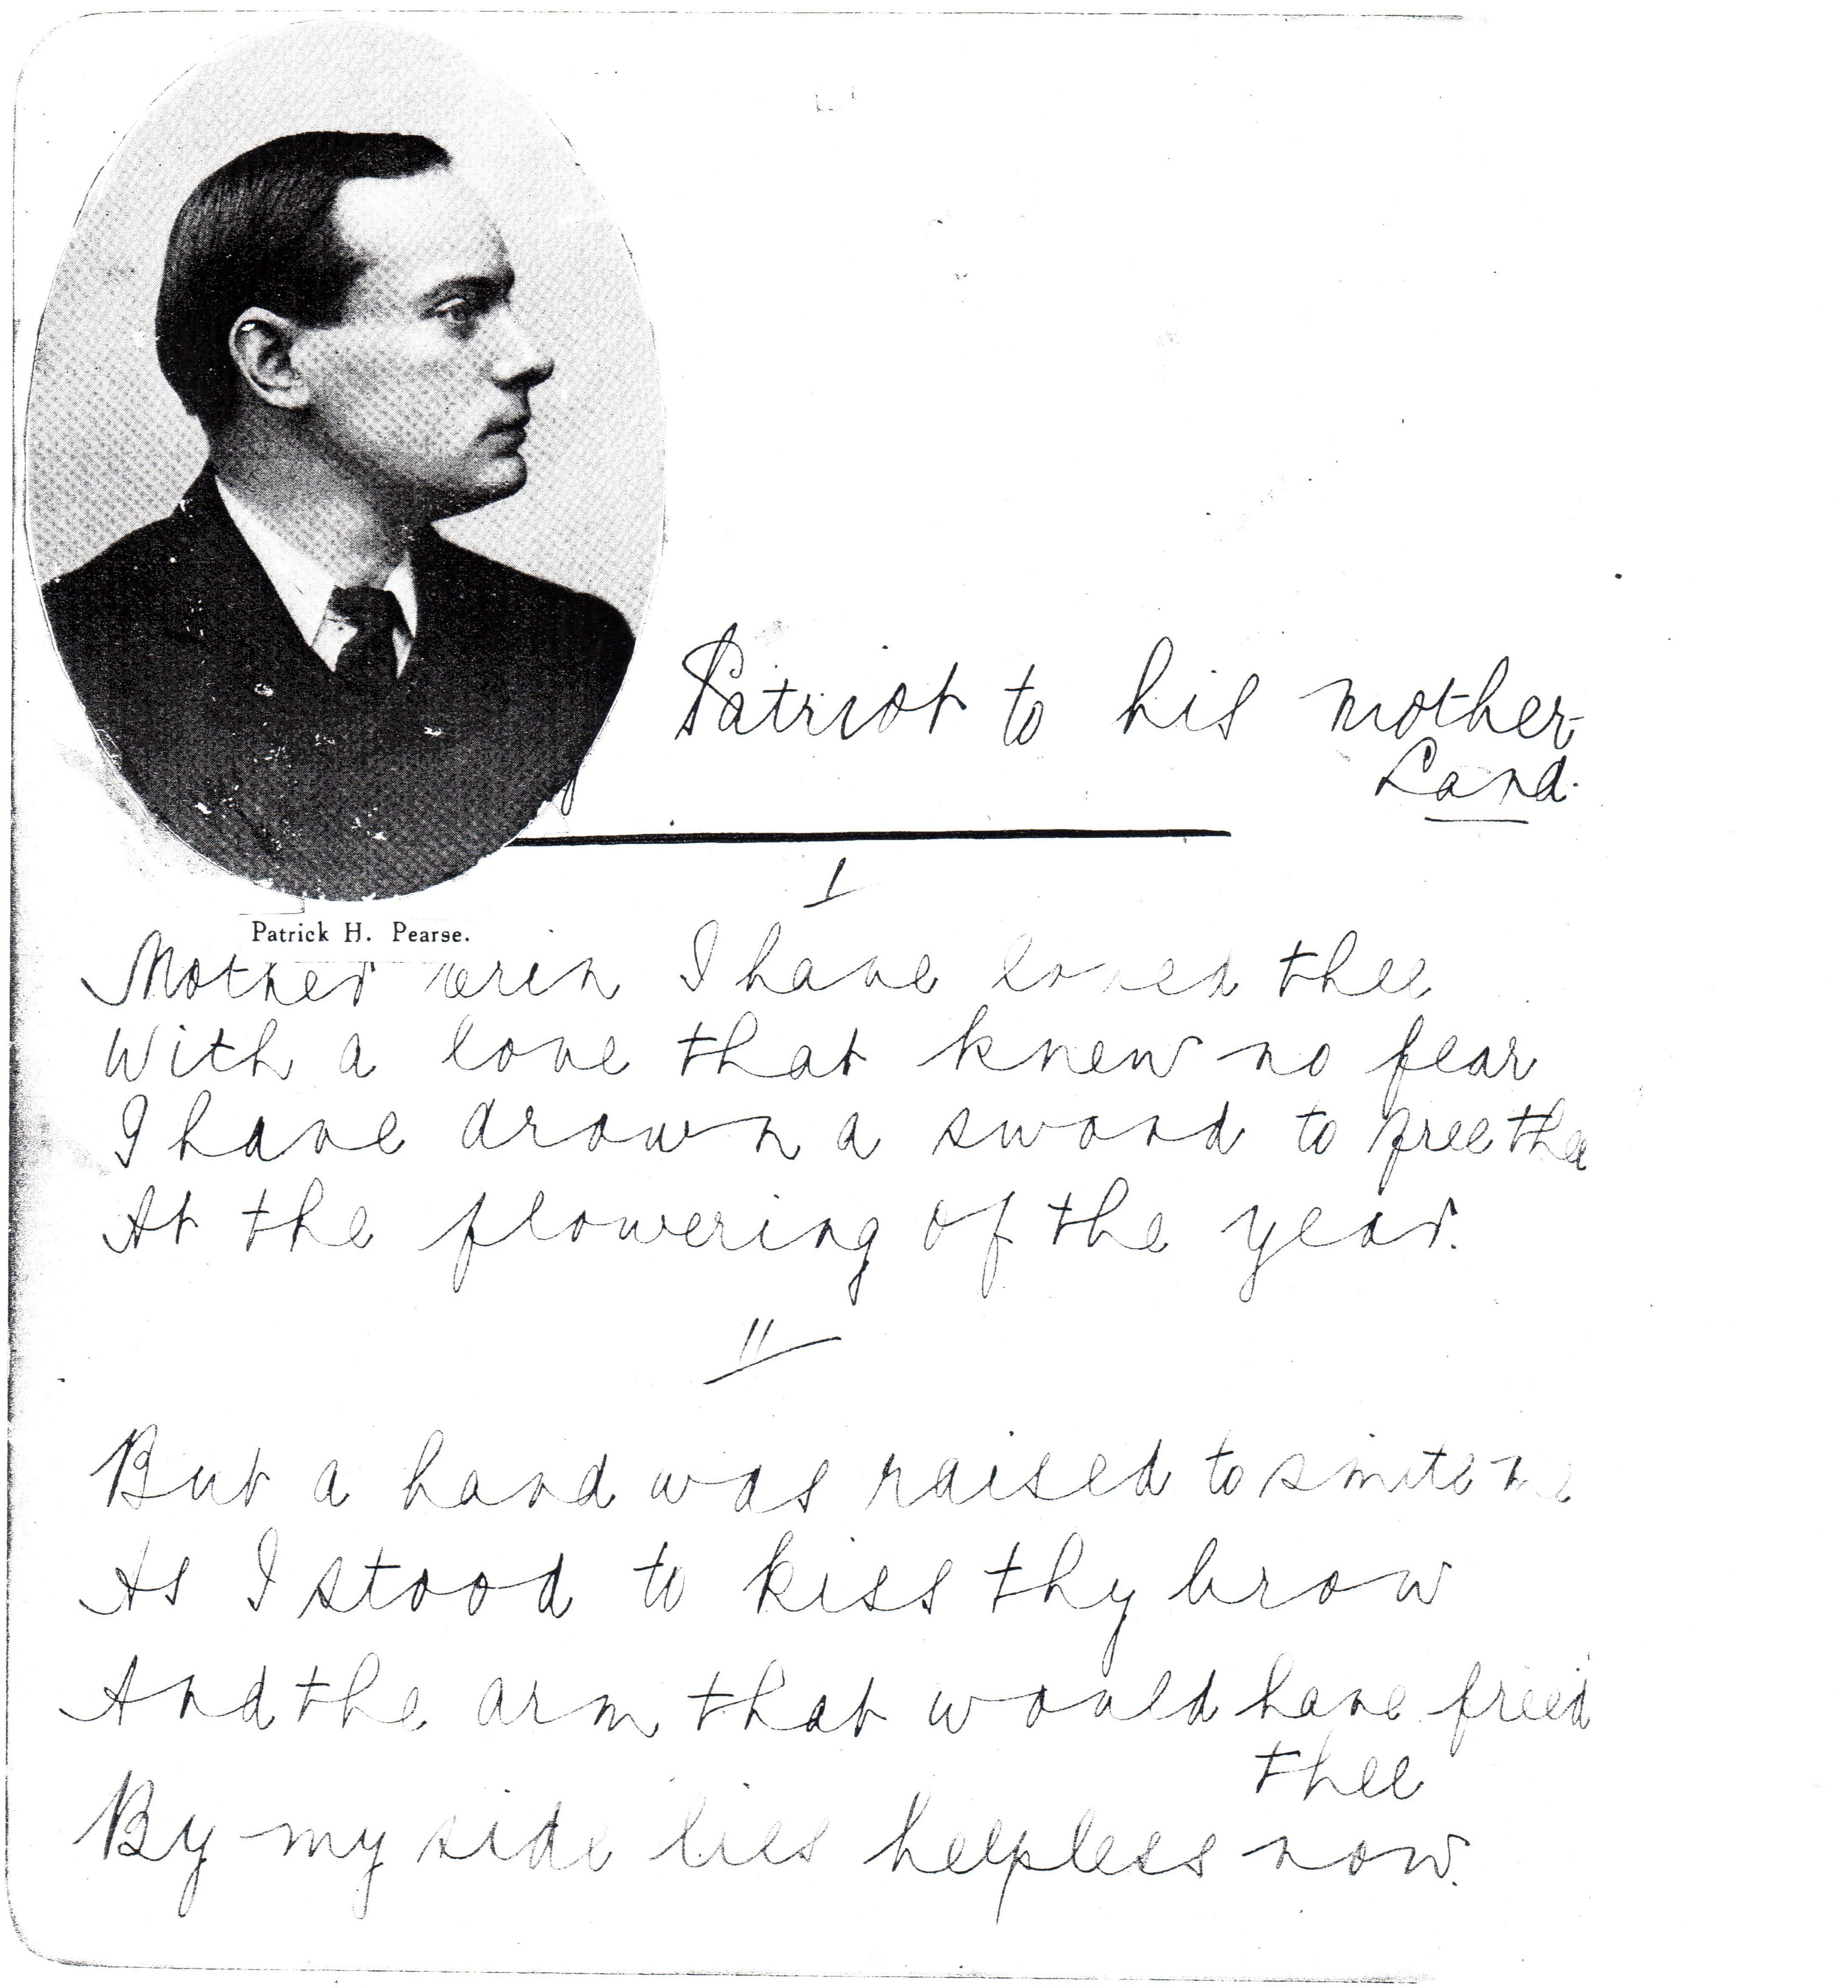 Patriot to his mother-
Land.
I
Patrick H. Pearse.
Mother Erin I have loved thee
With a love that knew no fear
I have drawn a sword to free thee
At the flowering of the year.
II
But a hand was raised to smite me
As I stood to kiss thy brow
And the arm that would have freed
thee
By my side lies helpless now.